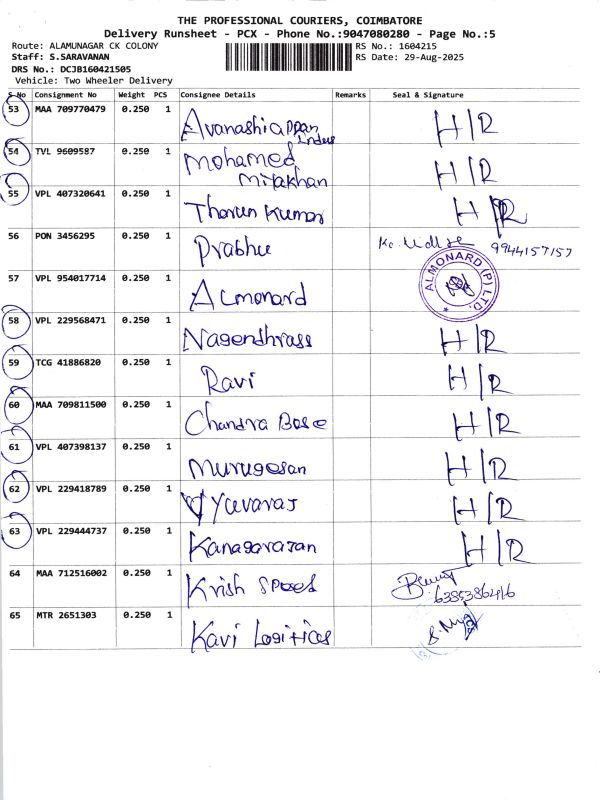 THE PROFESSIONAL COURIERS, COIMBATORE
Delivery Runsheet - PCX - Phone No.:9047080280 - Page No.:5
Route: ALAMUNAGAR CK COLONY RS No.: 1604215
Staff: S.SARAVANAN RS Date: 29-Aug-2025
DRS No.: DCJB160421505
Vehicle: Two Wheeler Delivery
S No Consignment No Weight PCS Consignee Details Remarks Seal & Signature
53 MAA 709770479 0.250 1 Avanashiappan H/R
54 TVL 9609587 0.250 1 Mohamed H/R
55 VPL 407320641 0.250 1 Tharun Kumar H/R
56 PON 3456295 0.250 1 Prabhu 9944157157
57 VPL 954017714 0.250 1 Almonard ALMONARD (P) LTD.
58 VPL 229568471 0.250 1 H/R
59 TCG 41886820 0.250 1 Ravi H/R
60 MAA 709811500 0.250 1 Chandra Bose H/R
61 VPL 407398137 0.250 1 Murugesan H/R
62 VPL 229418789 0.250 1 Yuvaraj H/R
63 VPL 229444737 0.250 1 Kanagarajan H/R
64 MAA 712516002 0.250 1 Krish
65 MTR 2651303 0.250 1 Kavi